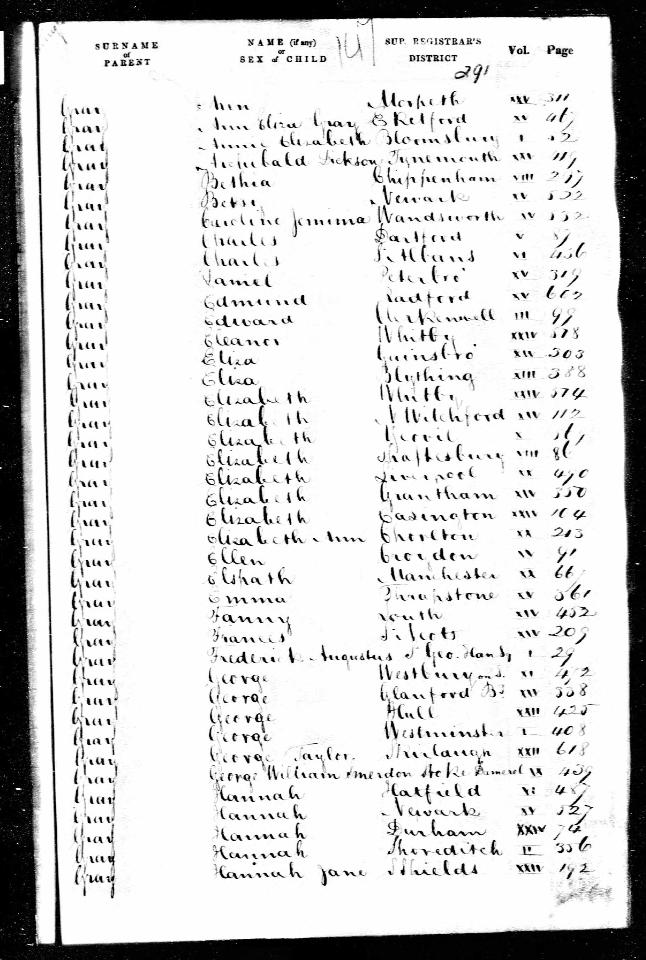 147
SURNAME of PARENT NAME (if any) or SEX of CHILD SUP. REGISTRAR'S DISTRICT Vol. Page
291
Gray Ann Morpeth XXV 311
Gray Ann Eliza Gray E Retford XV 467
Gray Annie Elizabeth Bloomsbury I 52
Gray Archibald Dickson Tynemouth XXV 119
Gray Bethia Chippenham VIII 217
Gray Betsy Newark XV 522
Gray Caroline Jemima Wandsworth IV 332
Gray Charles Dartford V 87
Gray Charles St Albans VI 456
Gray Daniel Peterbro' XV 319
Gray Edmund Radford XV 603
Gray Edward Clerkenwell III 99
Gray Eleanor Whitby XXIV 518
Gray Eliza Gainsbro' XIV 303
Gray Eliza Blything XIII 388
Gray Elizabeth Whitby XXIV 574
Gray Elizabeth N Witchford XIV 112
Gray Elizabeth Yeovil X 567
Gray Elizabeth Shaftesbury VIII 86
Gray Elizabeth Liverpool XX 490
Gray Elizabeth Grantham XIV 350
Gray Elizabeth Easington XXIV 104
Gray Elizabeth Ann Chorlton XX 213
Gray Ellen Croydon IV 91
Gray Elspath Manchester XX 667
Gray Emma Thrapstone XV 361
Gray Fanny Louth XIV 452
Gray Frances St Neots XIV 209
Gray Frederick Augustus St Geo. Han Sq I 29
Gray George Westbury on S. XI 472
Gray George Glanford Bg XIV 338
Gray George Hull XXII 425
Gray George Westminster I 408
Gray George Taylor Skirlaugh XXII 618
Gray George William Smerdon Stoke Damerel IX 439
Gray Hannah Hatfield VI 487
Gray Hannah Newark XV 527
Gray Hannah Durham XXIV 74
Gray Hannah Shoreditch II 356
Gray Hannah Jane S Shields XXIV 192